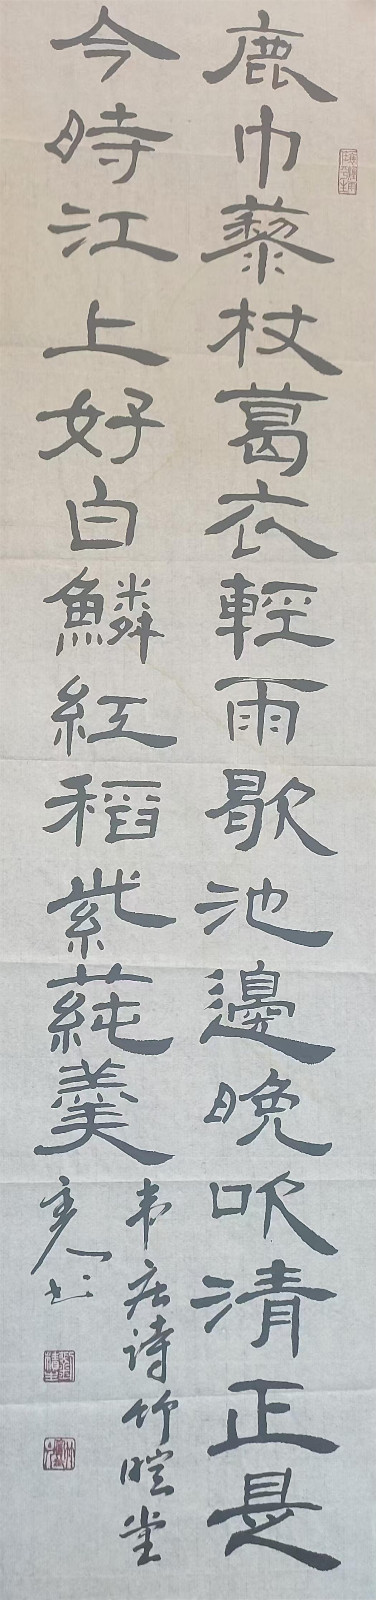 鹿巾藜杖葛衣輕雨歇池邊晚吹清正是
今時江上好白鱗紅稻紫蒓羹
韦庄诗竹暄堂
主人书